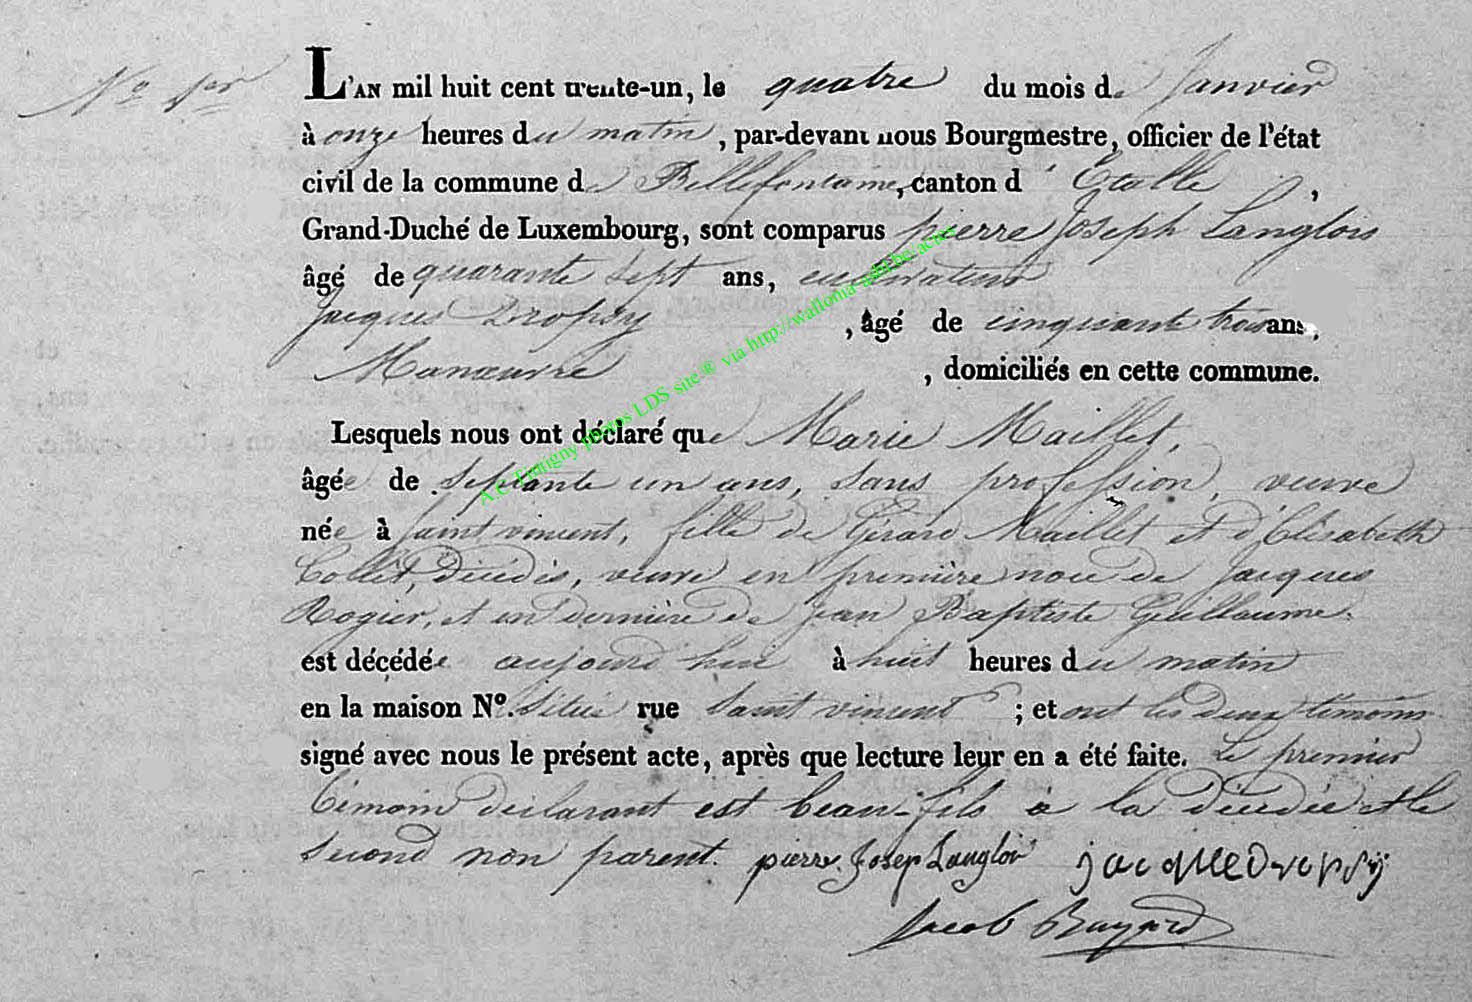 Nº 1er
L'AN mil huit cent trente-un, le quatre du mois de Janvier
à onze heures du matin, par-devant nous Bourgmestre, officier de l'état
civil de la commune de Bellefontaine, canton d' Etalle,
Grand-Duché de Luxembourg, sont comparus pierre Joseph Langlois
âgé de quarante sept ans, cultivateur
Jacques Dropsy, âgé de cinquante trois ans,
Manœuvre, domiciliés en cette commune.
Lesquels nous ont déclaré que Marie Maillet,
âgée de septante un ans, sans profession, veuve
née à Saint vincent, fille de Gérard Maillet et d'Elisabeth
Collet, décédés, veuve en première noce de Jacques
Rogier, et en dernière de Jean Baptiste Guillaume.
est décédée aujourd'hui à huit heures du matin
en la maison Nº. située rue Saint vincent ; et ont les deux témoins
signé avec nous le présent acte, après que lecture leur en a été faite. Le premier
témoin déclarant est beau-fils à la décédée et le
second non parent. pierre Josep Langloi jacque Dropsÿ
Jacob
A.C. Tintigny photos LDS site ® via http://wallonia-asbl.be/actes